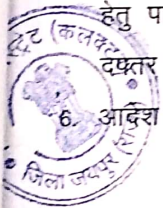 हेतु प
दफ्तर
6. आदेश
(कलक्टर
जिला जयपुर (राज